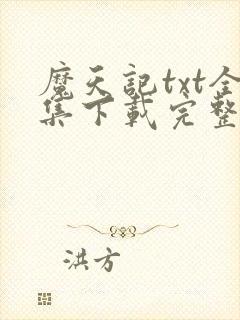 魔天記txt全
集下載完整
洪方